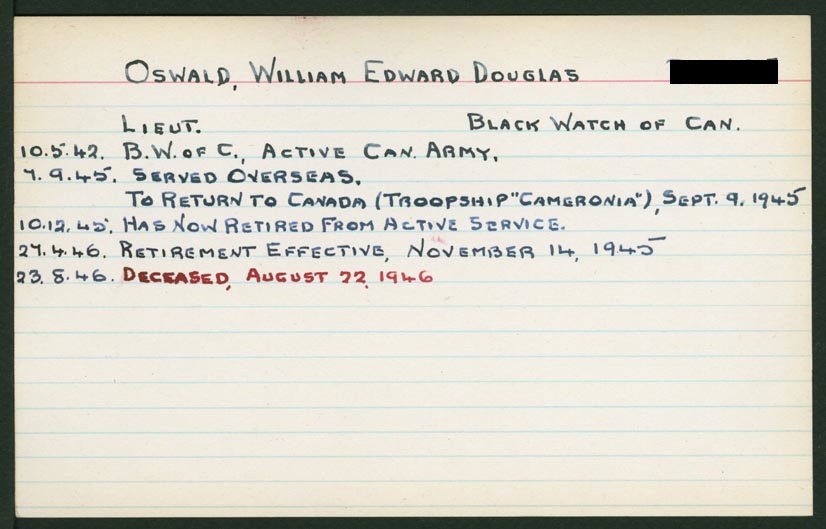 OSWALD, WILLIAM EDWARD DOUGLAS
LIEUT. BLACK WATCH OF CAN.
10.5.42. B.W. OF C., ACTIVE CAN. ARMY.
7.9.45. SERVED OVERSEAS.
TO RETURN TO CANADA (TROOPSHIP "CAMERONIA"), SEPT. 9, 1945
10.12.45. HAS NOW RETIRED FROM ACTIVE SERVICE.
27.4.46. RETIREMENT EFFECTIVE, NOVEMBER 14, 1945
23.8.46. DECEASED, AUGUST 22, 1946